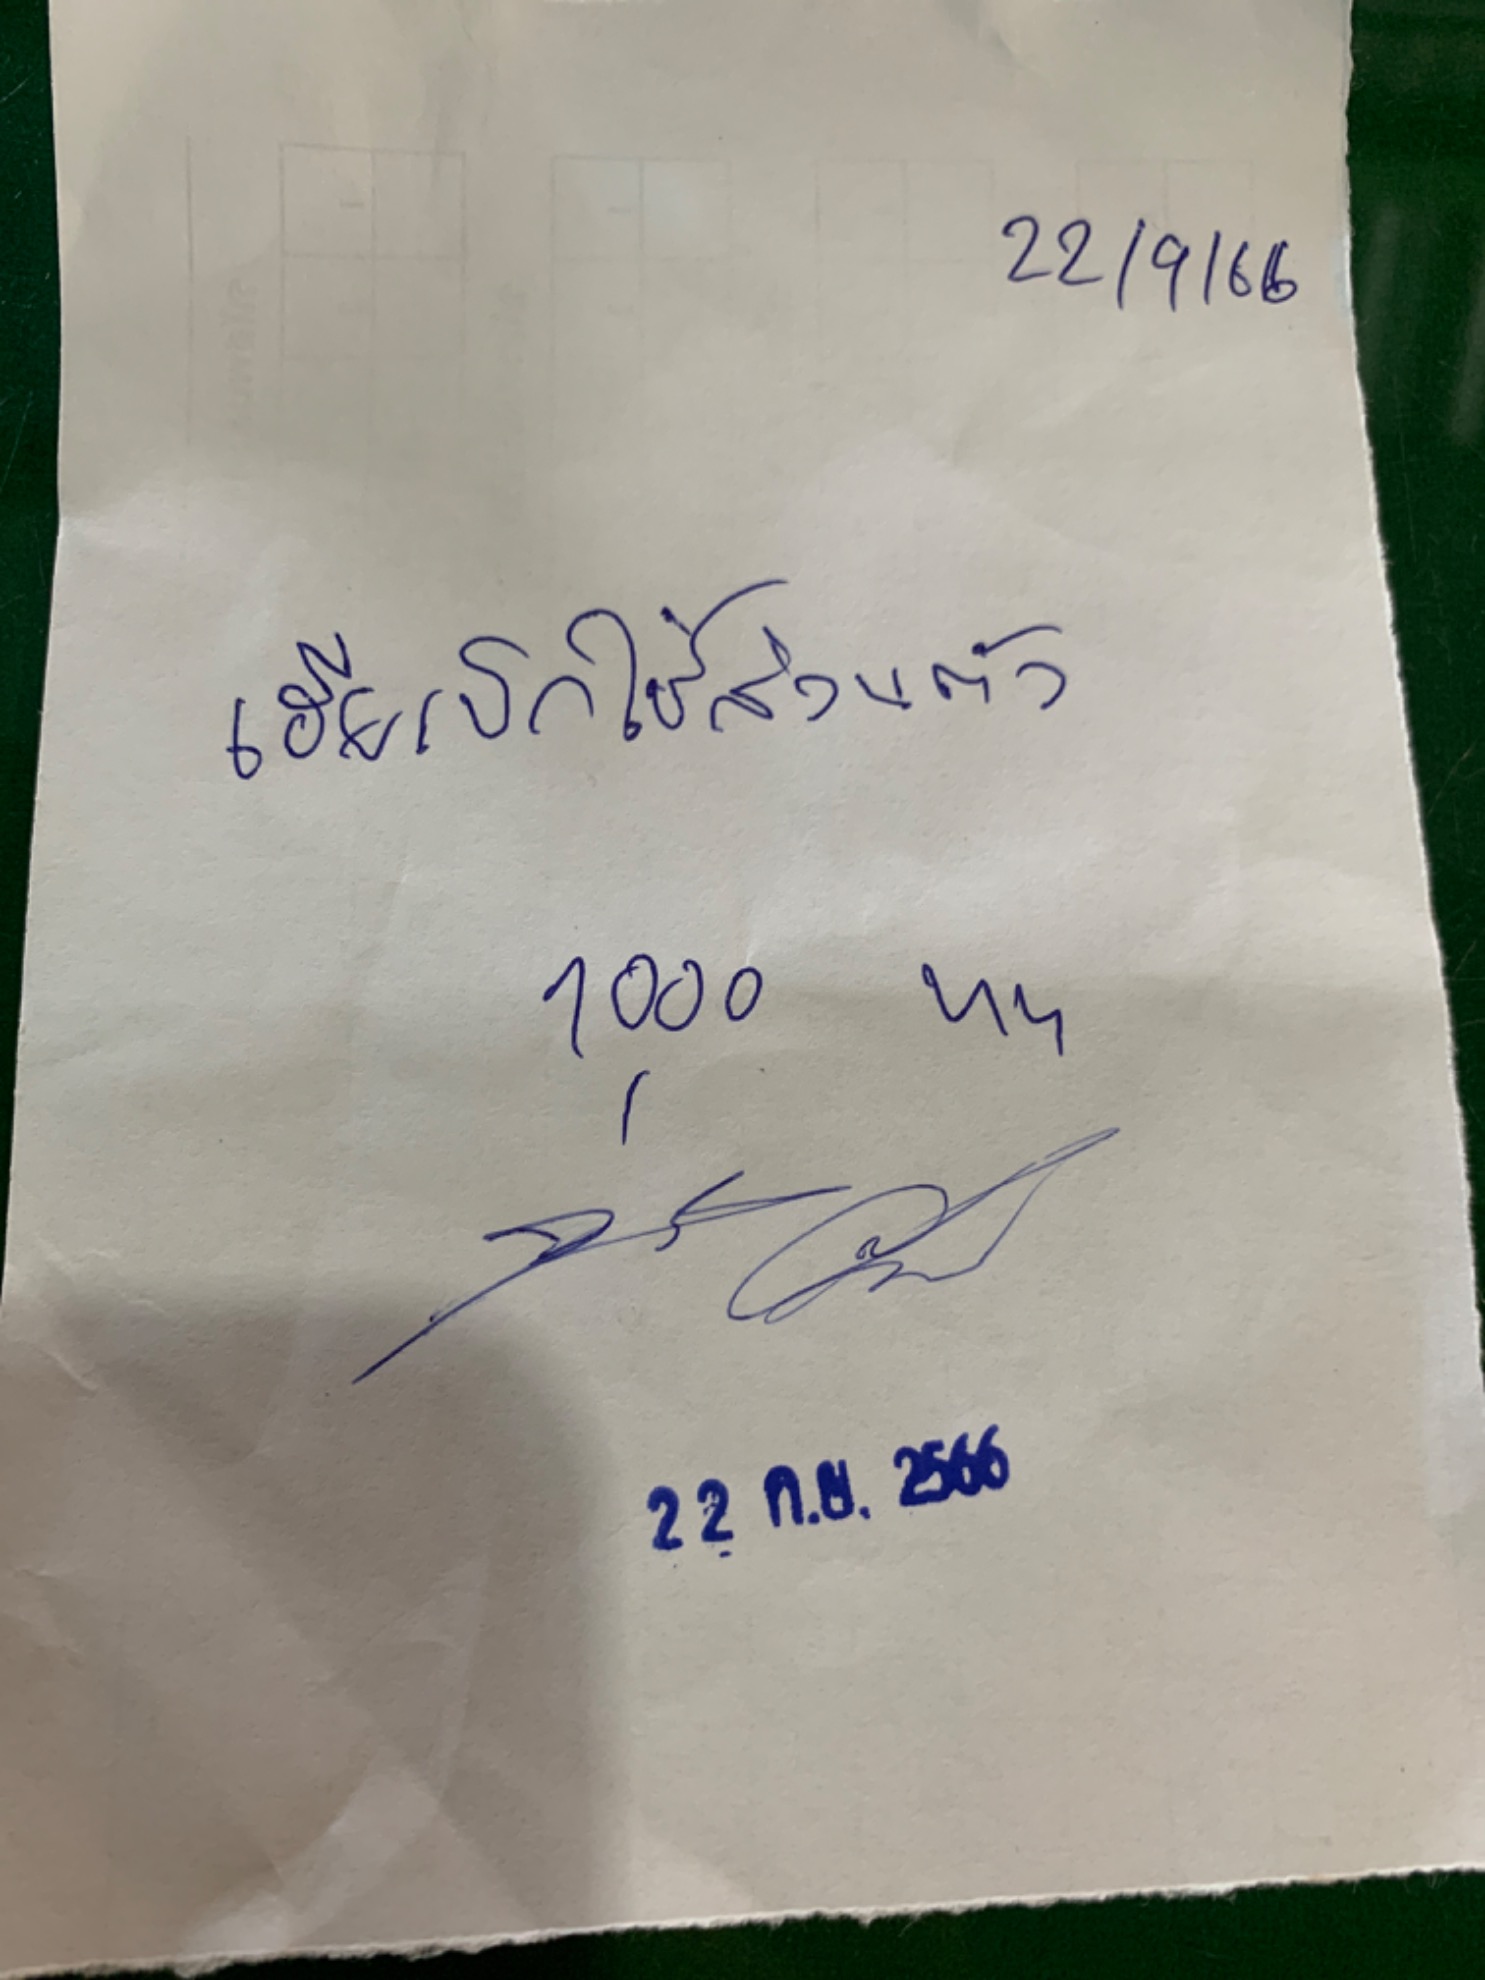 22/9/66
เฮียเบิกใช้ส่วนตัว
1000 บาท
22 ก.ย. 2566